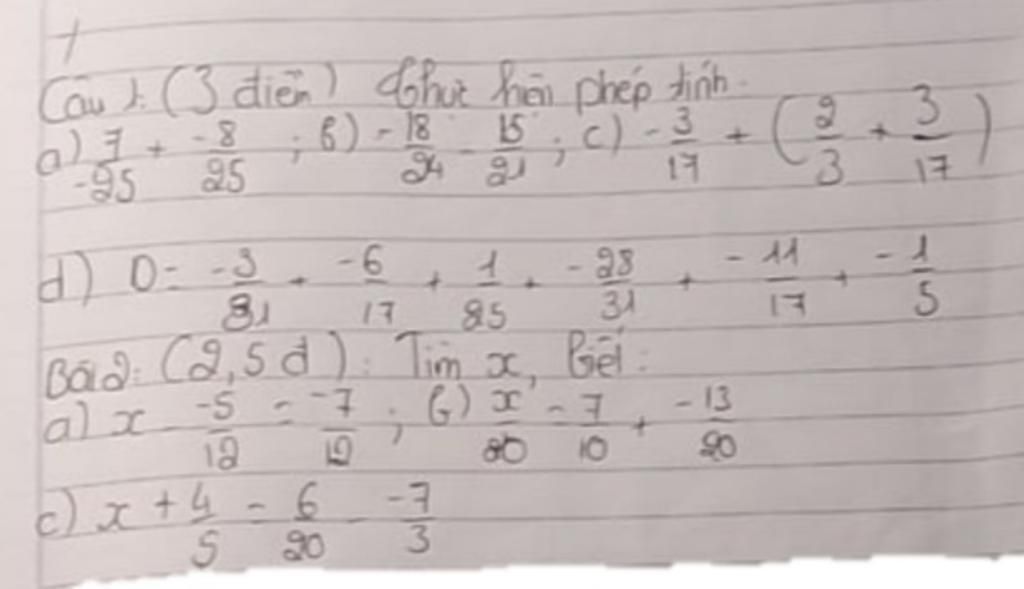 Câu 1: (3 điểm) Thực hiện phép tính.
a) 7/-25 + -8/25 ; b) -18/24 - 15/21 ; c) -3/17 + (2/3 + 3/17)
d) D = -3/31 + -6/17 + 1/25 + -28/31 + -11/17 + -1/5
Bài 2: (2,5 đ): Tìm x, biết:
a) x - -5/12 = -7/12 ; b) x/20 = 7/10 + -13/20
c) x + 4/5 = 6/20 - -7/3